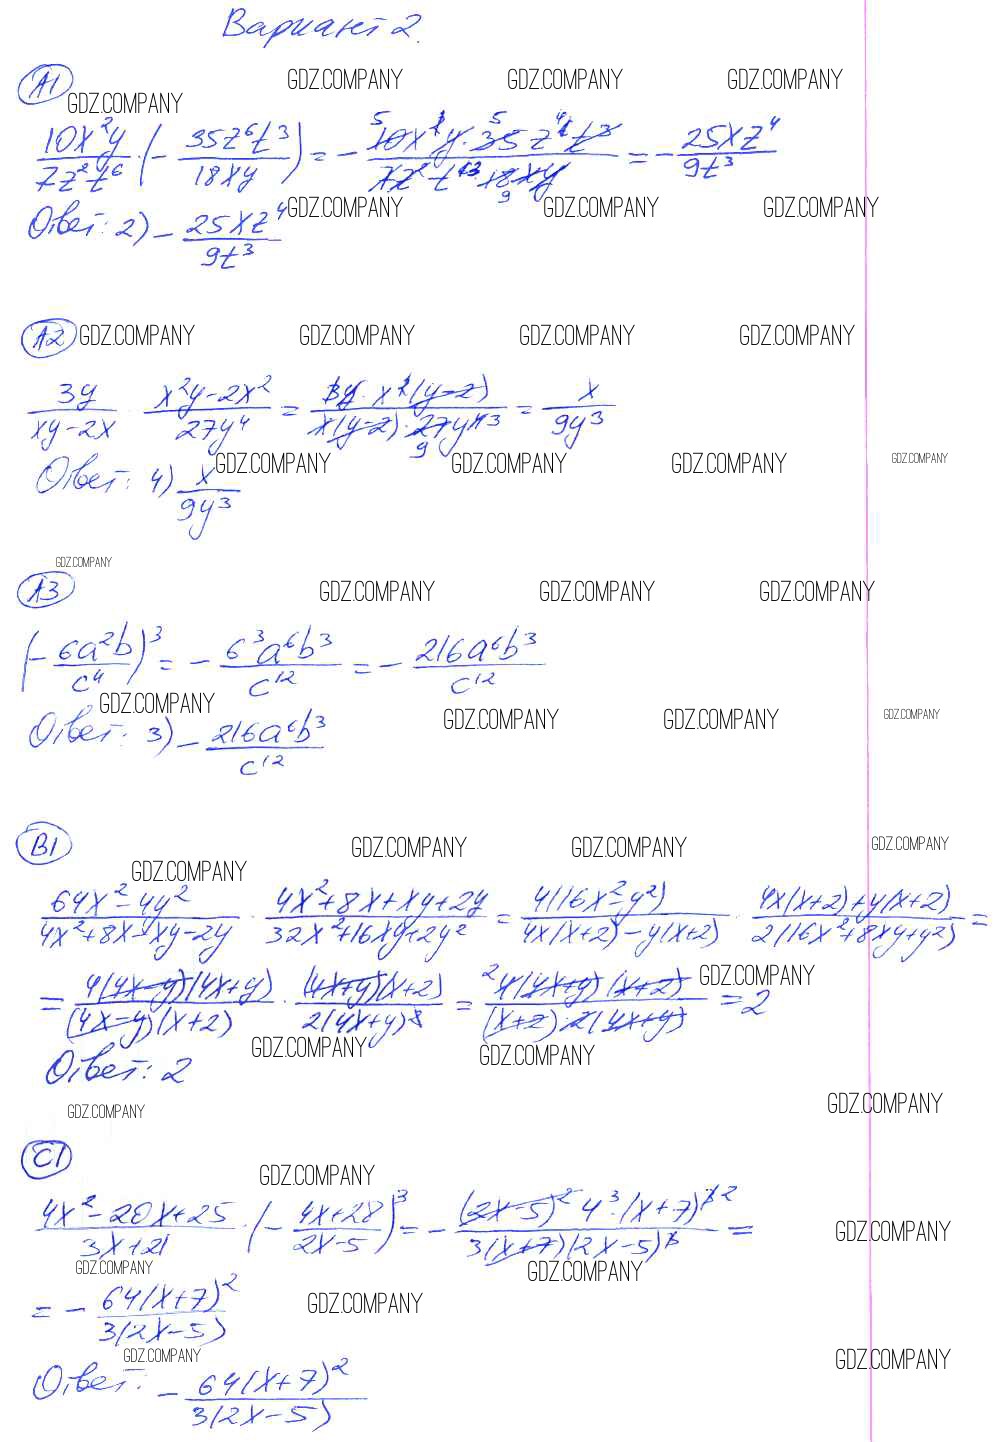 Вариант 2.
A1
GDZ.COMPANY GDZ.COMPANY GDZ.COMPANY GDZ.COMPANY
10x²y/7z²t⁶ · (− 35z⁶t³/18xy) = − 10x²y · 35z⁶t³/7z²t⁶ · 18xy = − 25xz⁴/9t³
GDZ.COMPANY GDZ.COMPANY GDZ.COMPANY
Ответ: 2) − 25xz⁴/9t³
A2 GDZ.COMPANY GDZ.COMPANY GDZ.COMPANY GDZ.COMPANY
3y/xy−2x · x²y−2x²/27y⁴ = 3y · x²(y−2)/x(y−2) · 27y⁴ = x/9y³
GDZ.COMPANY GDZ.COMPANY GDZ.COMPANY GDZ.COMPANY
Ответ: 4) x/9y³
GDZ.COMPANY
A3 GDZ.COMPANY GDZ.COMPANY GDZ.COMPANY
(− 6a²b/c⁴)³ = − 6³a⁶b³/c¹² = − 216a⁶b³/c¹²
GDZ.COMPANY GDZ.COMPANY GDZ.COMPANY GDZ.COMPANY
Ответ: 3) − 216a⁶b³/c¹²
B1
GDZ.COMPANY GDZ.COMPANY GDZ.COMPANY GDZ.COMPANY
64x²−4y²/4x²+8x−xy−2y · 4x²+8x+xy+2y/32x²+16xy+2y² = 4(16x²−y²)/4x(x+2)−y(x+2) · 4x(x+2)+y(x+2)/2(16x²+8xy+y²) =
GDZ.COMPANY
= 4(4x−y)(4x+y)/(4x−y)(x+2) · (4x+y)(x+2)/2(4x+y)² = 4(4x+y)(x+2)/(x+2)·2(4x+y) = 2
GDZ.COMPANY GDZ.COMPANY
Ответ: 2
GDZ.COMPANY GDZ.COMPANY
C1
GDZ.COMPANY
4x²−20x+25/3x+21 · (− 4x+28/2x−5)³ = − (2x−5)² 4³·(x+7)³/3(x+7)(2x−5)³ =
GDZ.COMPANY
GDZ.COMPANY GDZ.COMPANY
= − 64(x+7)²/3(2x−5)
GDZ.COMPANY
GDZ.COMPANY GDZ.COMPANY
Ответ: − 64(x+7)²/3(2x−5)